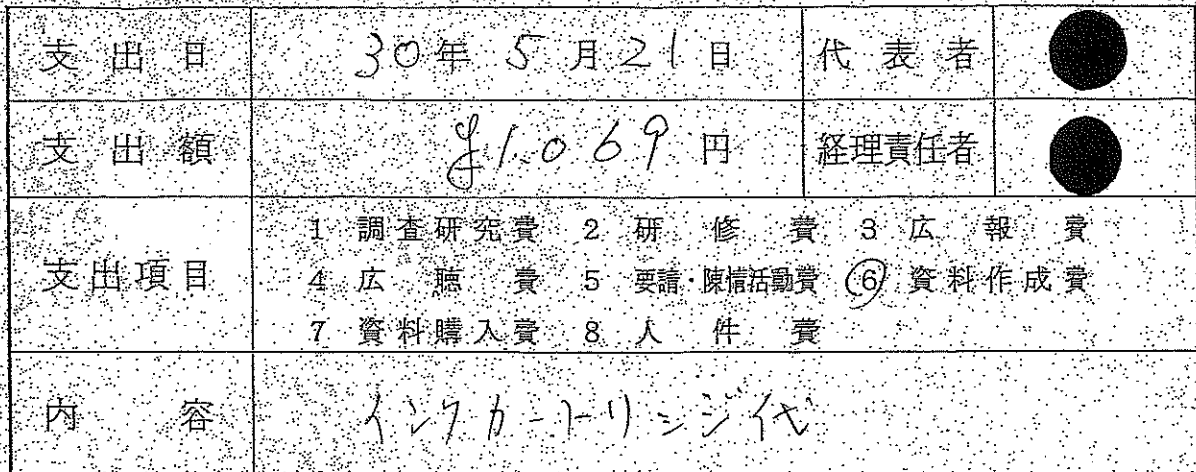 支出日 30年5月21日 代表者
支出額 ¥1.069円 経理責任者
1 調査研究費 2 研修費 3 広報費
支出項目 4 広聴費 5 要請・陳情活動費 6 資料作成費
7 資料購入費 8 人件費
内容 インクカートリッジ代